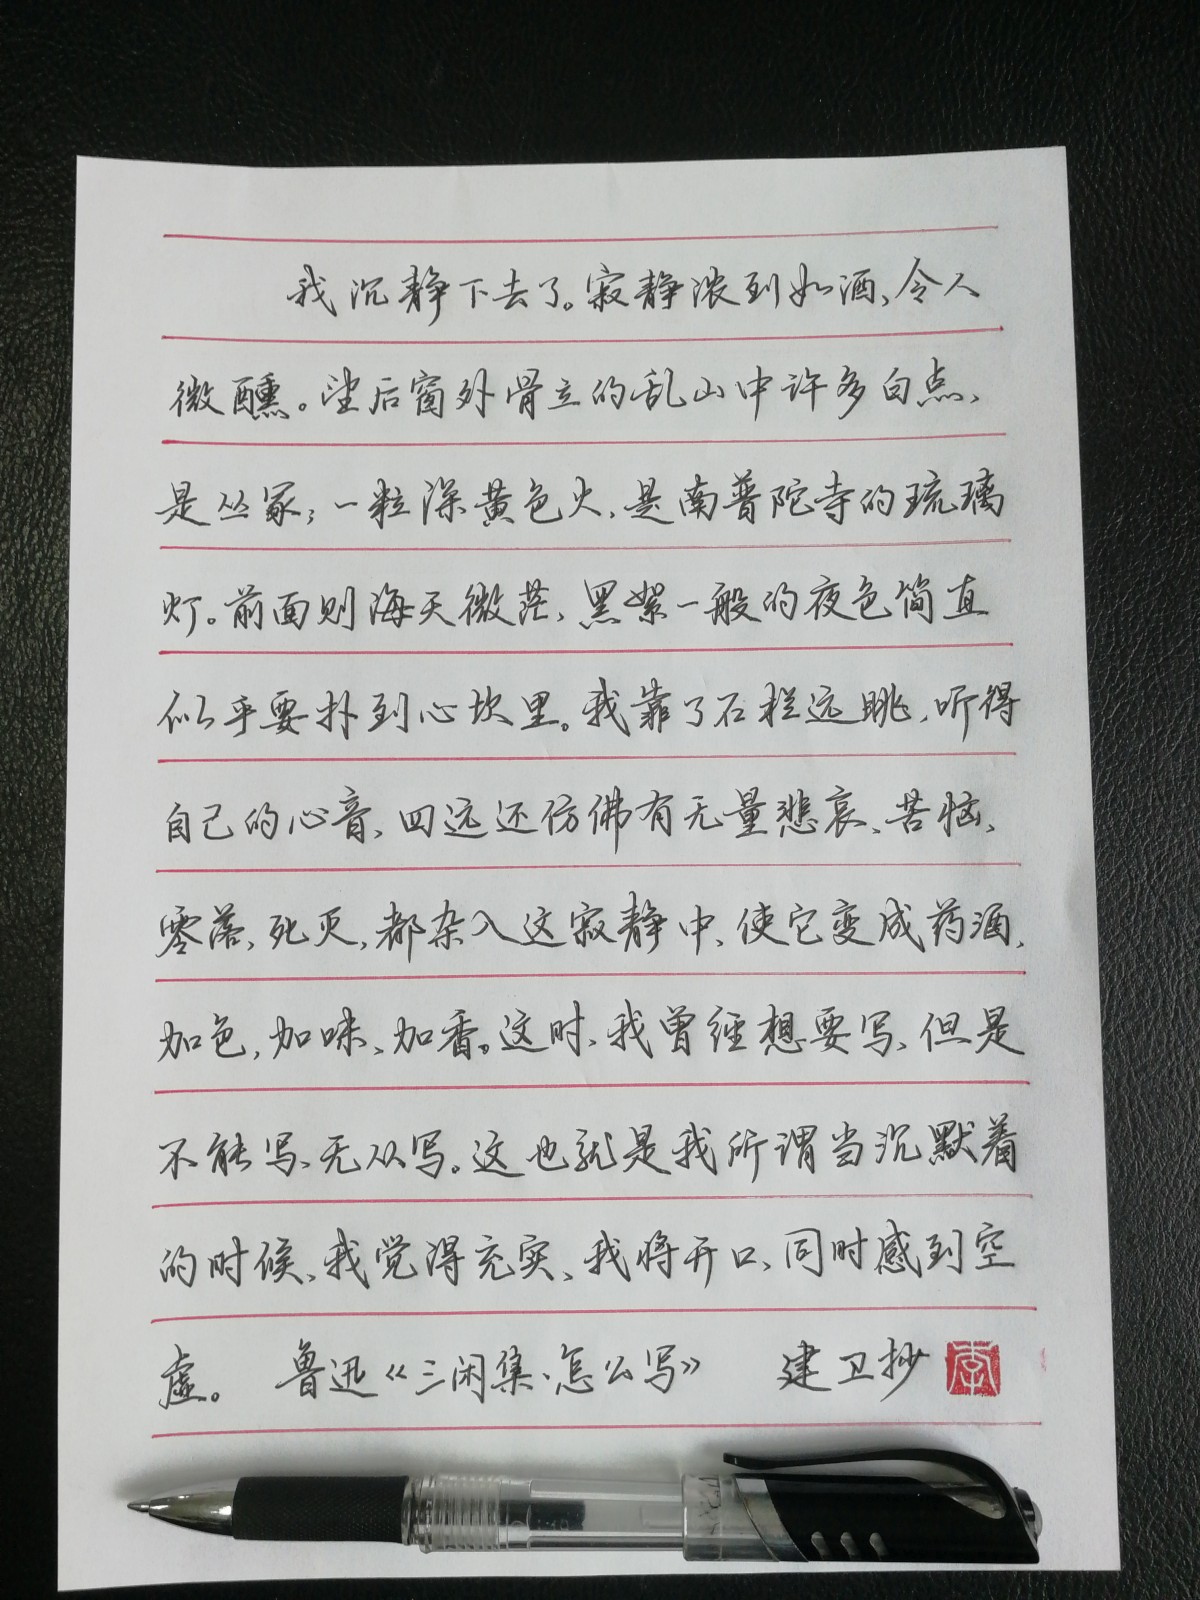 我沉静下去了。寂静浓到如酒,令人
微醺。望后窗外骨立的乱山中许多白点,
是丛冢;一粒深黄色火,是南普陀寺的琉璃
灯。前面则海天微茫,黑絮一般的夜色简直
似乎要扑到心坎里。我靠了石栏远眺,听得
自己的心音,四远还仿佛有无量悲哀、苦恼、
零落,死灭,都杂入这寂静中,使它变成药酒,
加色,加味,加香。这时,我曾经想要写,但是
不能写,无从写。这也就是我所谓当沉默着
的时候,我觉得充实,我将开口,同时感到空
虚。 鲁迅《三闲集·怎么写》 建卫抄